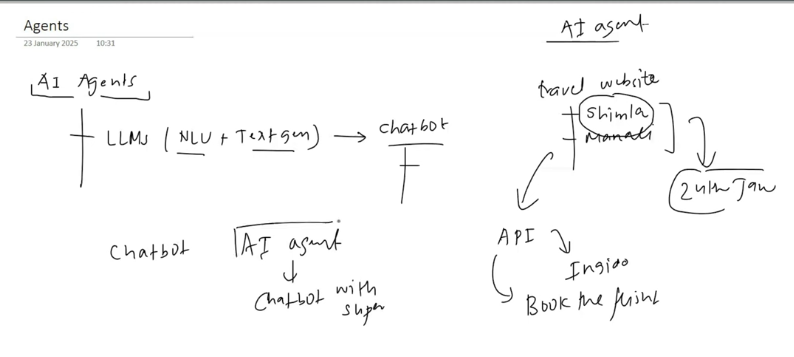 Agents
23 January 2025 10:31
AI Agents
LLMs (NLU + Text gen) → chatbot
Chatbot
AI agent
Chatbot with
super
AI agent
travel website
Shimla
Manali
24th Jan
API
Indigo
Book the flight